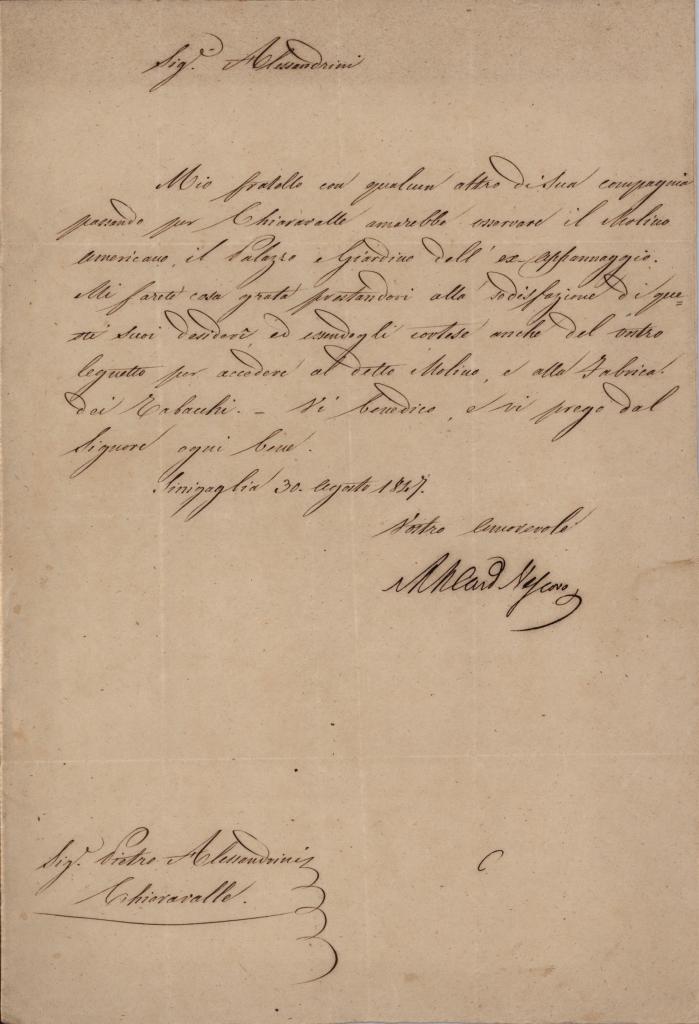 Sig.r Alessandrini
Mio fratello con qualcun altro di sua compagnia
passando per Chiaravalle amerebbe osservare il Molino
americano, il Palazzo e Giardino dell' ex-appannaggio.
Mi farete cosa grata prestandovi alla sodisfazione di que=
sti suoi desiderî, ed essendogli cortese anche del vostro
legnetto per accedere al detto Molino, e alla Fabrica
dei Tabacchi. – Vi benedico, e vi prego dal
Signore ogni bene.
Sinigaglia 30. Agosto 1847.
Vostro Amorevole
Card Vescovo
Sig.r Pietro Alessandrini
Chiaravalle.